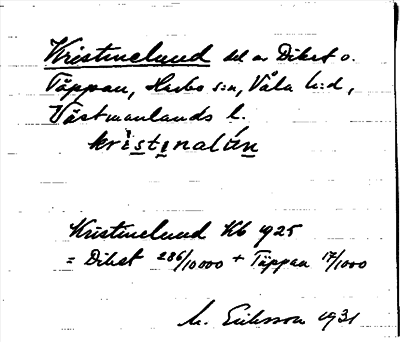 Kristinelund del av Dikst o.
Täppan, Harbo s:n, Våla h:d,
Västmanlands l.
kristinalún
Kristinelund Kb 1925
= Dikst 286/10000 + Täppan 17/1000
M. Eriksson 1931